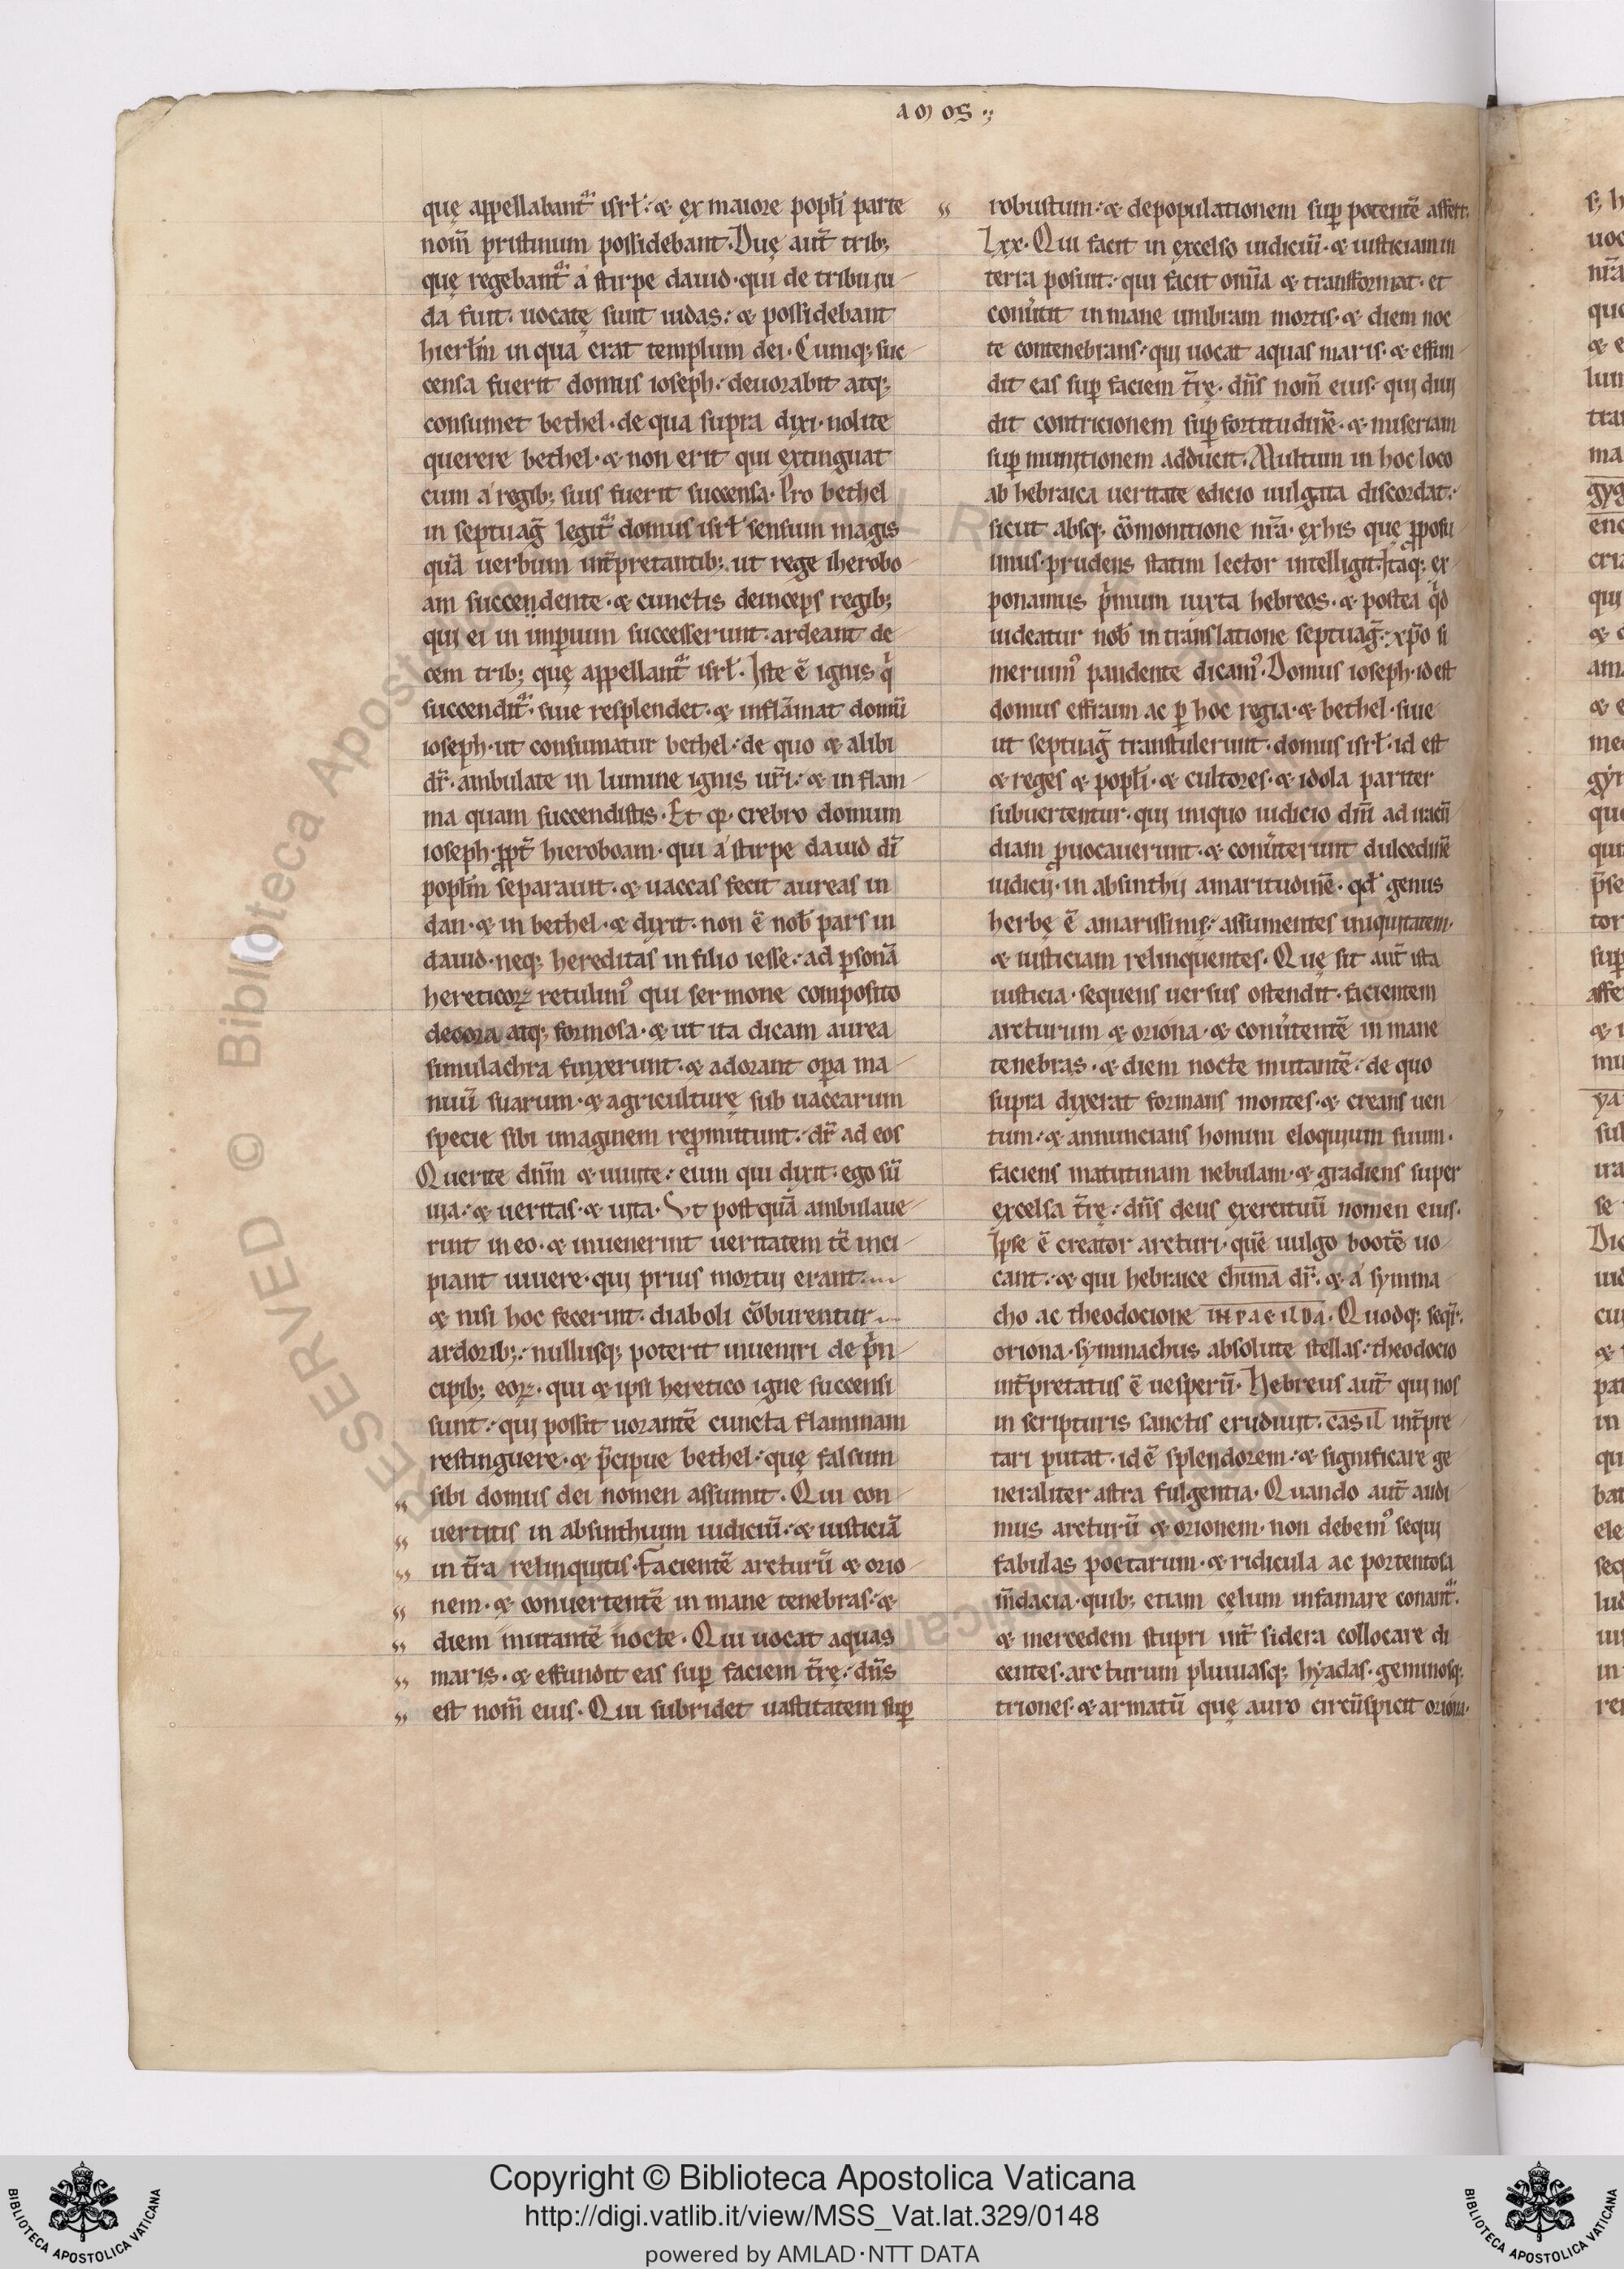 AMOS
quę appellabant᷑ isrł· & ex maiore popłi parte
nom̄ pristinum possidebant. Duę aut̄ trib;
quę regebant᷑ a stirpe dauid· qui de tribu iu
da fuit· uocatę sunt iudas· & possidebant
hierłm in qua erat templum dei. Cumq; suc
censa fuerit domus ioseph· deuorabit atq;
consumet bethel· de qua supra dixi· nolite
querere bethel· & non erit qui extinguat
cum a regib; suis fuerit succensa. Pro bethel
in septuag̃ legit᷑ domus isrł sensum magis
quā uerbum int̄pretantib;. ut rege iherobo
am succendente· & cunctis deinceps regib;
qui ei in imꝑium successerunt· ardeant de
cem trib; quę appellant᷑ isrł. Iste ē ignis qi
succendit᷑· siue resplendet· & inflāmat domū
ioseph· ut consumatur bethel· de quo & alibi
dr̄· ambulate in lumine ignis ur̄i· & in flam
ma quam succendistis. Et qꝛ crebro domum
ioseph· ꝓpt̄ hieroboam· qui a stirpe dauid dī
popłm separauit· & uaccas fecit aureas in
dan· & in bethel· & dixit· non ē nob̄ pars in
dauid· neq; hereditas in filio iesse· ad ꝑsonā
hereticoꝝ retulimꝰ qui sermone composito
decora atq; formosa· & ut ita dicam aurea
simulachra finxerunt· & adorant oꝑa ma
nuū suarum· & agriculturę sub uaccarum
specie sibi imaginem reꝓmittunt· dr̄ ad eos
Querite dn̄m & uiuite· eum qui dixit· ego sū
uia· & ueritas· & uita. Vt postquā ambulaue
rint in eo· & inuenerint ueritatem tc̄ inci
piant uiuere· qui prius mortui erant.
& nisi hoc fecerint· diaboli cōburentur
ardorib;· nullusq; poterit inueniri de pin
cipib; eoꝝ· qui & ipsi heretico igne succensi
sunt· qui possit uorantē cuncta flammam
restinguere· & p̄cipue bethel· quę falsum
sibi domus dei nomen assumit. Qui con
uertitis in absinthium iudiciū· & iusticiā
in t̄ra relinquitis. Facientē arcturū & orio
nem· & conuertentē in mane tenebras· &
diem mutantē nocte. Qui uocat aquas
maris· & effundit eas suꝑ faciem t̄rę· dn̄s
est nom̄ eius. Qui subridet uastitatem suꝑ
robustum· & depopulationem suꝑ potentē affert.
Lxx. Qui facit in excelso iudiciū· & iusticiam in
terra posuit· qui facit om̄ia & transformat· et
conu̓tit in mane umbram mortis· & diem noc
te contenebrans· qui uocat aquas maris· & effun
dit eas suꝑ faciem t̄rę· dn̄s nom̄ eius· qui diui
dit contricionem suꝑ fortitudinē· & miseriam
suꝑ munitionem adducit. Multum in hoc loco
ab hebraica ueritate edicio uulgata discordat·
sicut absq; cōmonitione nr̄a· ex his quę ꝓposu
imus· prudens statim lector intelligit. Itaq; ex
ponamus pimum iuxta hebreos· & postea qid
uideatur nob̄ in translatione septuag̃· xp̄o si
meruimꝰ pandente dicamꝰ. Domus ioseph· id est
domus effraim ac ꝑ hoc regia· & bethel· siue
ut septuag̃ transtulerunt· domus isrł· id est
& reges & popłi· & cultores· & idola pariter
subuertentur· qui iniquo iudicio dm̄ ad iracū
diam ꝓuocauerunt· & conu̓terunt dulcedinē
iudicii· in absinthij amaritudinē· qd̄ genus
herbę ē amarissimę· assumentes iniquitatem·
& iusticiam relinquentes. Quę sit aut̄ ista
iusticia· sequens uersus ostendit· facientem
arcturum & oriona· & conu̓tentē in mane
tenebras· & diem nocte mutantē· de quo
supra dixerat formans montes· & creans uen
tum· & annuncians homini eloquium suum·
faciens matutinam nebulam· & gradiens super
excelsa t̄rę· dn̄s deus exercituū nomen eius.
Ipse ē creator arcturi· quē uulgo bootē uo
cant· & qui hebraice chima dr̄· & a symma
cho ac theodocione . Quodq; seqr̄·
oriona· symmachus absolute stellas· theodocio
int̄pretatus ē uesperū. Hebreus aut̄ qui nos
in scripturis sanctis erudiuit· casil int̄pre
tari putat· id ē splendorem· & significare ge
neraliter astra fulgentia. Quando aut̄ audi
mus arcturū & orionem· non debemꝰ sequi
fabulas poetarum· & ridicula ac portentosa
m̄dacia· quib; etiam cęlum infamare conant᷑·
& mercedem stupri int̄ sidera collocare di
centes· arcturum pluuiasq; hyadas· geminosq;
triones· & armatū quę auro circūspicit oriona·
Copyright © Biblioteca Apostolica Vaticana
http://digi.vatlib.it/view/MSS_Vat.lat.329/0148
powered by AMLAD·NTT DATA